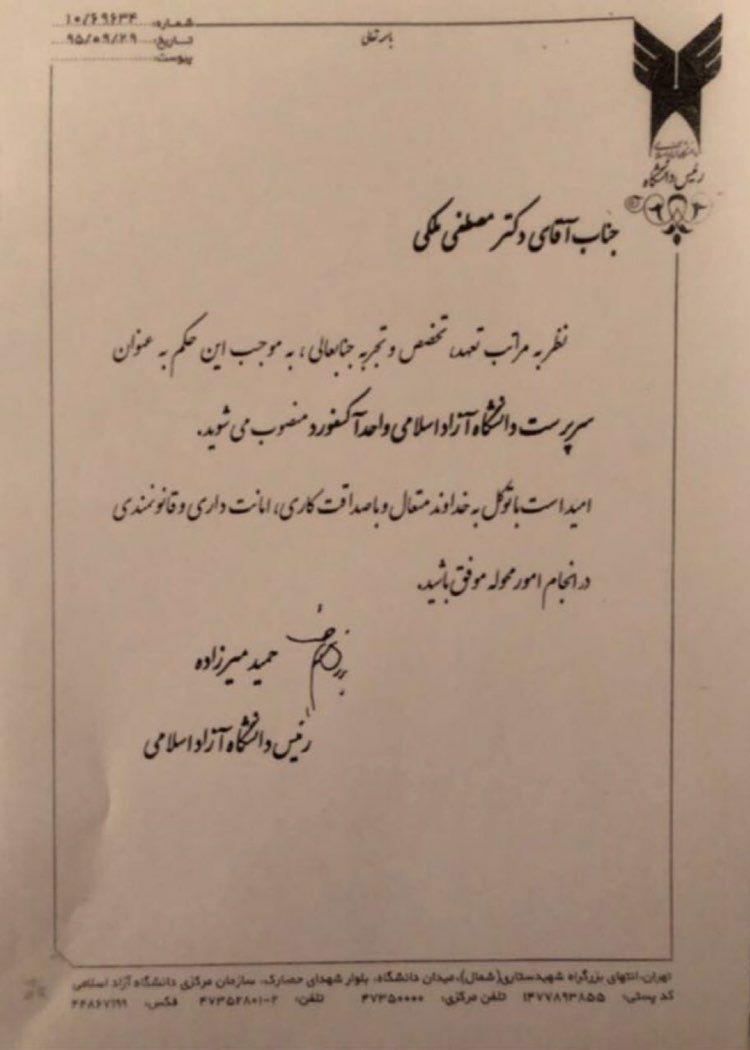 باسمه تعالی
شماره: ۱۰/۶۹۶۳۴
تاریخ: ۹۵/۰۹/۲۹
پیوست:
رئیس دانشگاه
جناب آقای دکتر مصطفی ملکی
نظر به مراتب تعهد، تخصص و تجربه جنابعالی، به موجب این حکم به عنوان
سرپرست دانشگاه آزاد اسلامی واحد آکسفورد منصوب می شوید.
امید است با توکل به خداوند متعال و با صداقت کاری، امانت داری و قانونمندی
در انجام امور محوله موفق باشید.
حمید میرزاده
رئیس دانشگاه آزاد اسلامی
تهران، انتهای بزرگراه شهید ستاری (شمال)، میدان دانشگاه، بلوار شهدای حصارک، سازمان مرکزی دانشگاه آزاد اسلامی
کد پستی: ۱۴۷۷۸۹۳۸۵۵ تلفن مرکزی: ۴۷۳۵۰۰۰۰ تلفن: ۴۷۳۵۲۸۰۱-۲ فکس: ۴۴۸۶۷۱۹۹